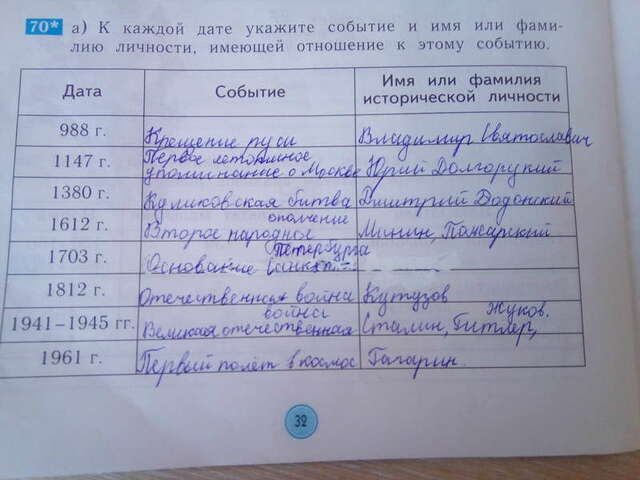 70* а) К каждой дате укажите событие и имя или фами-
лию личности, имеющей отношение к этому событию.
Дата Событие Имя или фамилия исторической личности
988 г. Крещение руси Владимир Святославич
1147 г. Первое летописное упоминание о Москве Юрий Долгорукий
1380 г. Куликовская битва Дмитрий Додонский
1612 г. Второе народное ополчение Минин, Пожарский
1703 г. Основание Санкт-Петербурга
1812 г. Отечественная война Кутузов
1941–1945 гг. Великая отечественная война Сталин, Гитлер, Жуков.
1961 г. Первый полёт в космос Гагарин.
32